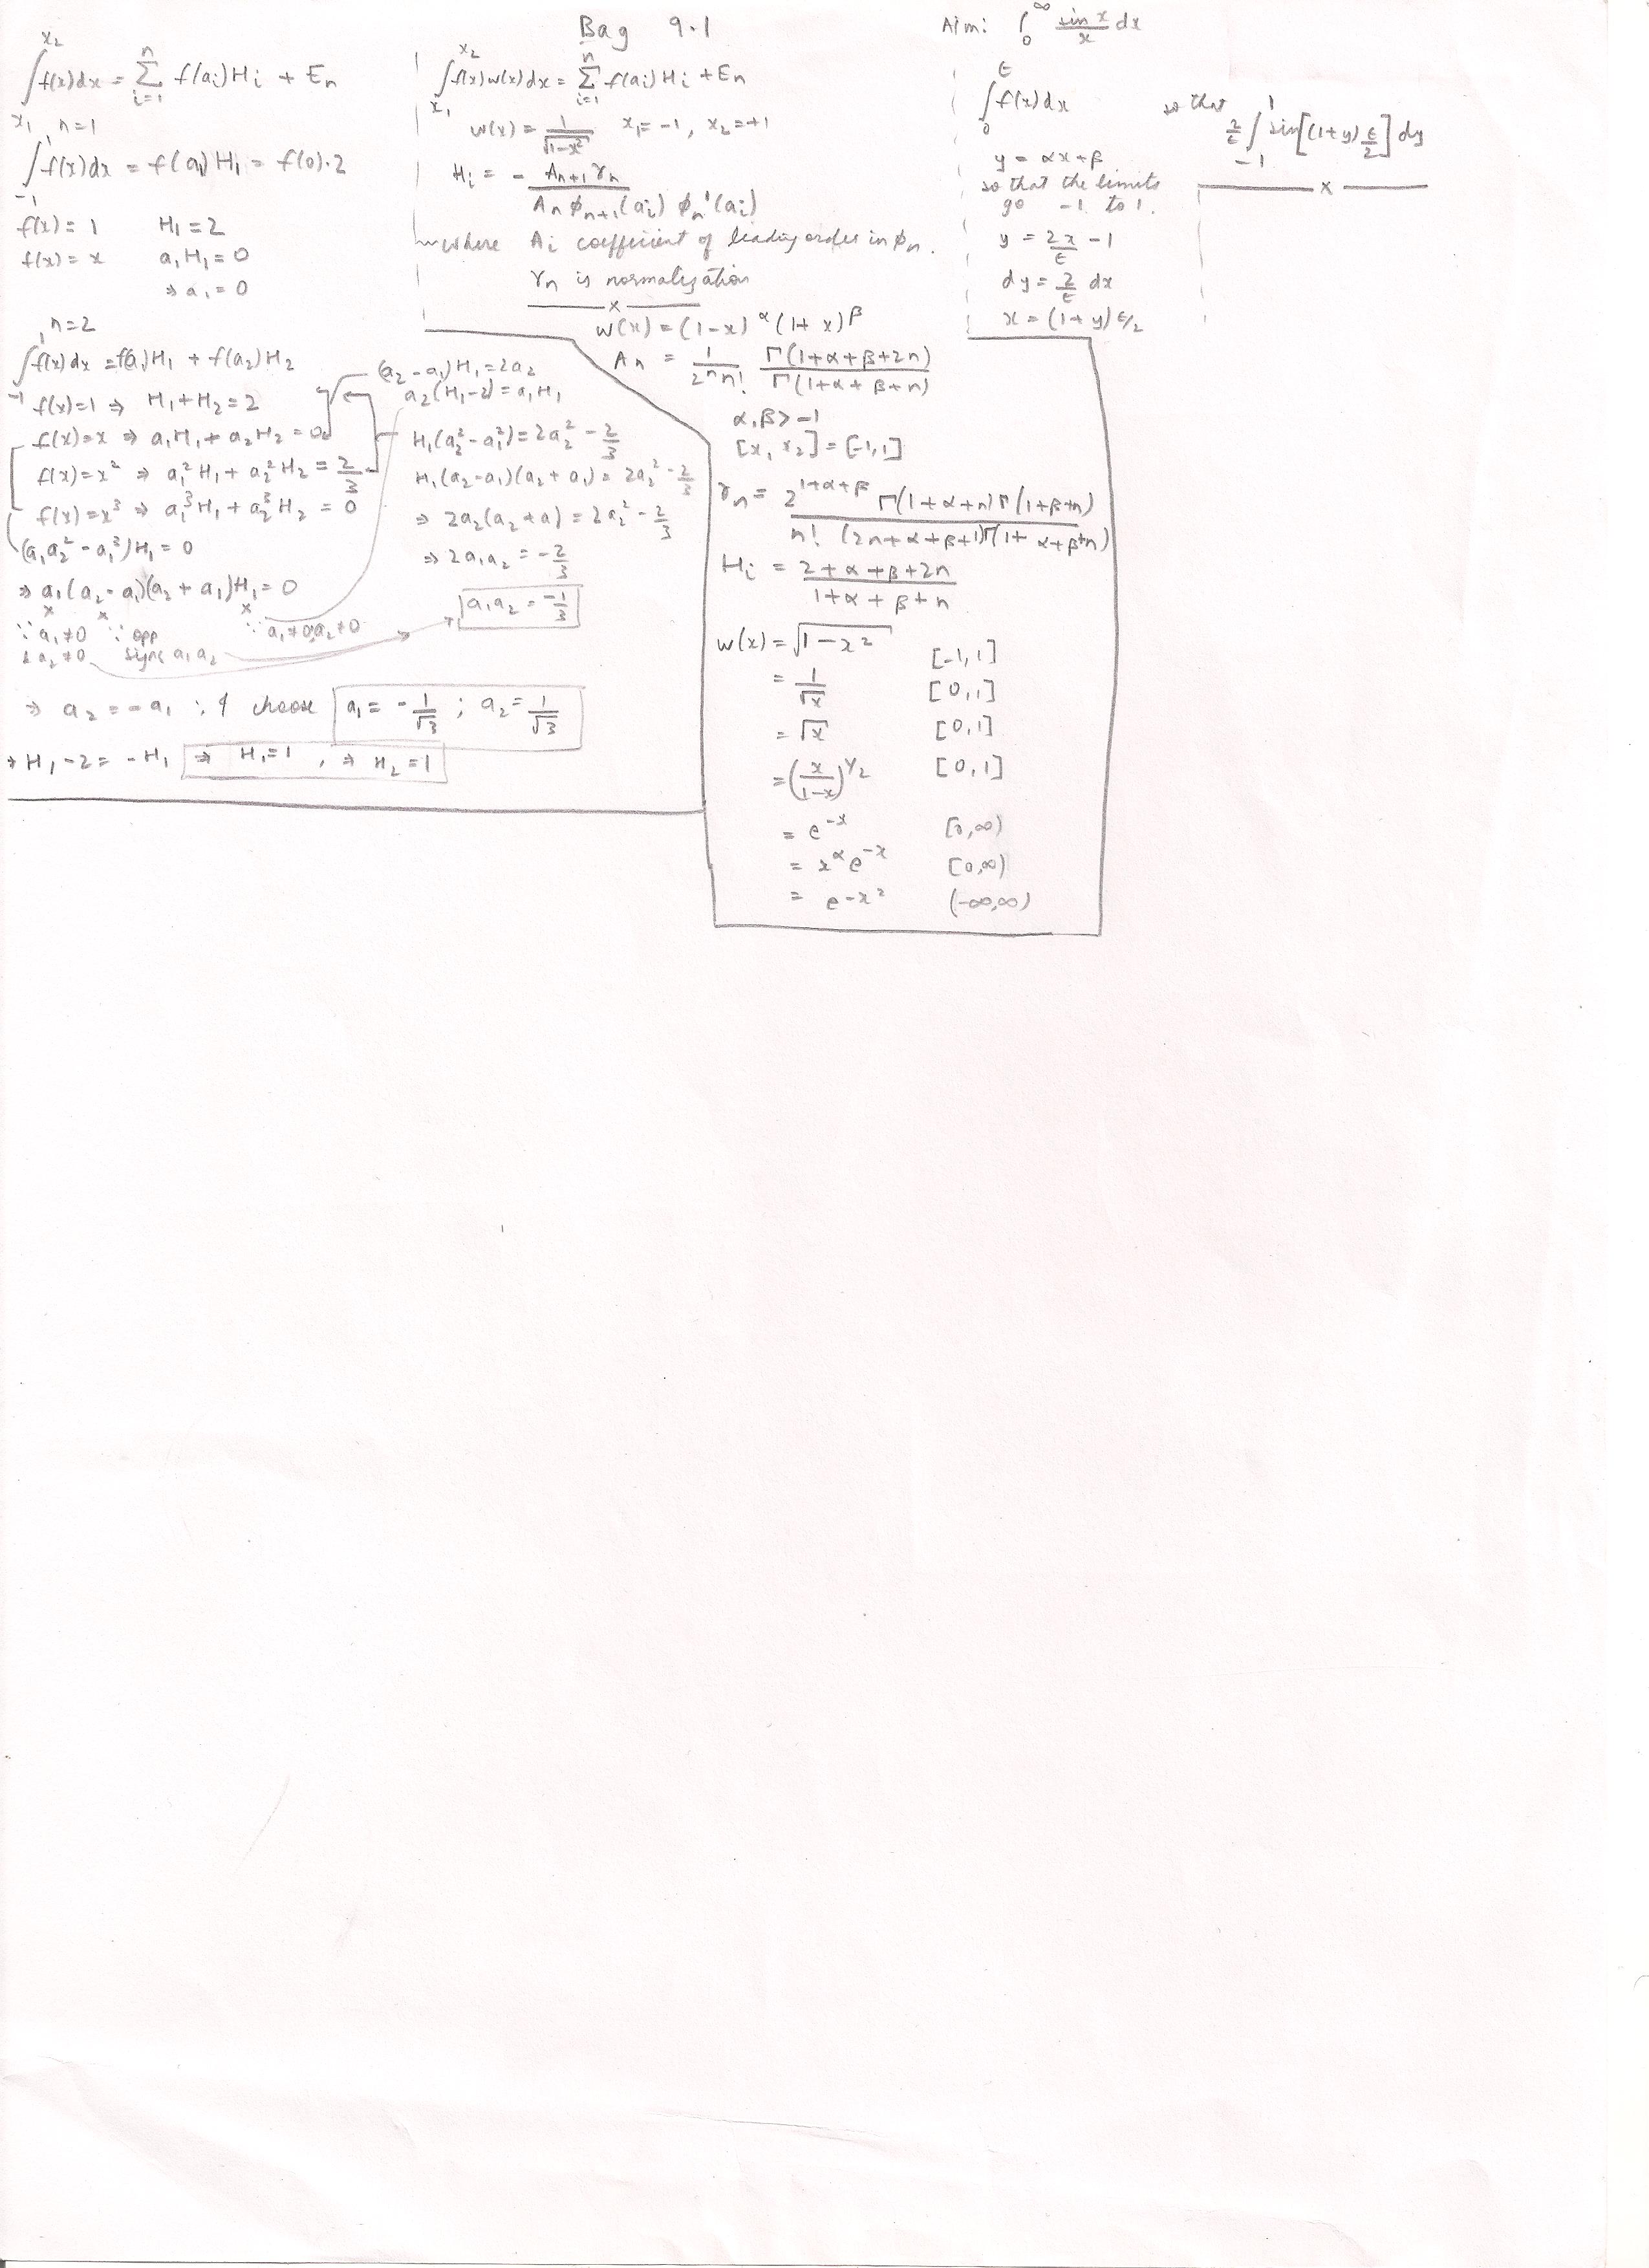 Bag 9.1
∫_{x₁}^{x₂} f(x)dx = Σ_{i=1}^{n} f(aᵢ)Hᵢ + Eₙ
n=1
∫_{-1}^{1} f(x)dx = f(a₁)H₁ = f(0)·2
f(x) = 1 H₁ = 2
f(x) = x a₁H₁ = 0
⇒ a₁ = 0
n=2
∫_{-1}^{1} f(x)dx = f(a₁)H₁ + f(a₂)H₂
f(x)=1 ⇒ H₁+H₂=2
f(x)=x ⇒ a₁H₁ + a₂H₂ = 0
f(x)=x² ⇒ a₁²H₁ + a₂²H₂ = 2/3
f(x)=x³ ⇒ a₁³H₁ + a₂³H₂ = 0
(a₁a₂² - a₁³)H₁ = 0
⇒ a₁(a₂-a₁)(a₂+a₁)H₁ = 0
x x x
∵ a₁≠0 ∵ opp ∵ a₁≠0, a₂≠0
& a₂≠0 signs a₁ a₂
(a₂-a₁)H₁ = 2a₂
a₂(H₁-2) = a₁H₁
H₁(a₂²-a₁²) = 2a₂² - 2/3
H₁(a₂-a₁)(a₂+a₁) = 2a₂² - 2/3
⇒ 2a₂(a₂+a) = 2a₂² - 2/3
⇒ 2a₁a₂ = -2/3
a₁a₂ = -1/3
⇒ a₂ = -a₁ ; I choose a₁ = -1/√3 ; a₂ = 1/√3
⇒ H₁-2 = -H₁ ⇒ H₁=1 , ⇒ H₂=1
∫_{x₁}^{x₂} f(x)w(x)dx = Σ_{i=1}^{n} f(aᵢ)Hᵢ + Eₙ
w(x) = 1/√(1-x²) x₁ = -1, x₂ = +1
Hᵢ = - Aₙ₊₁γₙ / Aₙφₙ₊₁(aᵢ) φₙ'(aᵢ)
where Aᵢ coefficient of leading order in φₙ.
γₙ is normalization
x
w(x) = (1-x)^α (1+x)^β
Aₙ = 1/(2ⁿn!) Γ(1+α+β+2n)/Γ(1+α+β+n)
α,β > -1
[x₁ x₂] = [-1,1]
γₙ = 2^{1+α+β} Γ(1+α+n)Γ(1+β+n) / n! (2n+α+β+1)Γ(1+α+β+n)
Hᵢ = 2+α+β+2n / 1+α+β+n
w(x) = √(1-x²) [-1,1]
= 1/√x [0,1]
= √x [0,1]
= (x/(1-x))^{1/2} [0,1]
= e^{-x} [0,∞)
= x^α e^{-x} [0,∞)
= e^{-x²} (-∞,∞)
Aim: ∫₀^∞ sin x/x dx
∫₀^ϵ f(x)dx
y = αx+β
so that the limits
go -1 to 1.
y = 2x/ϵ - 1
dy = 2/ϵ dx
x = (1+y)ϵ/2
so that
2/ϵ ∫_{-1}^{1} sin[(1+y)ϵ/2] dy
x